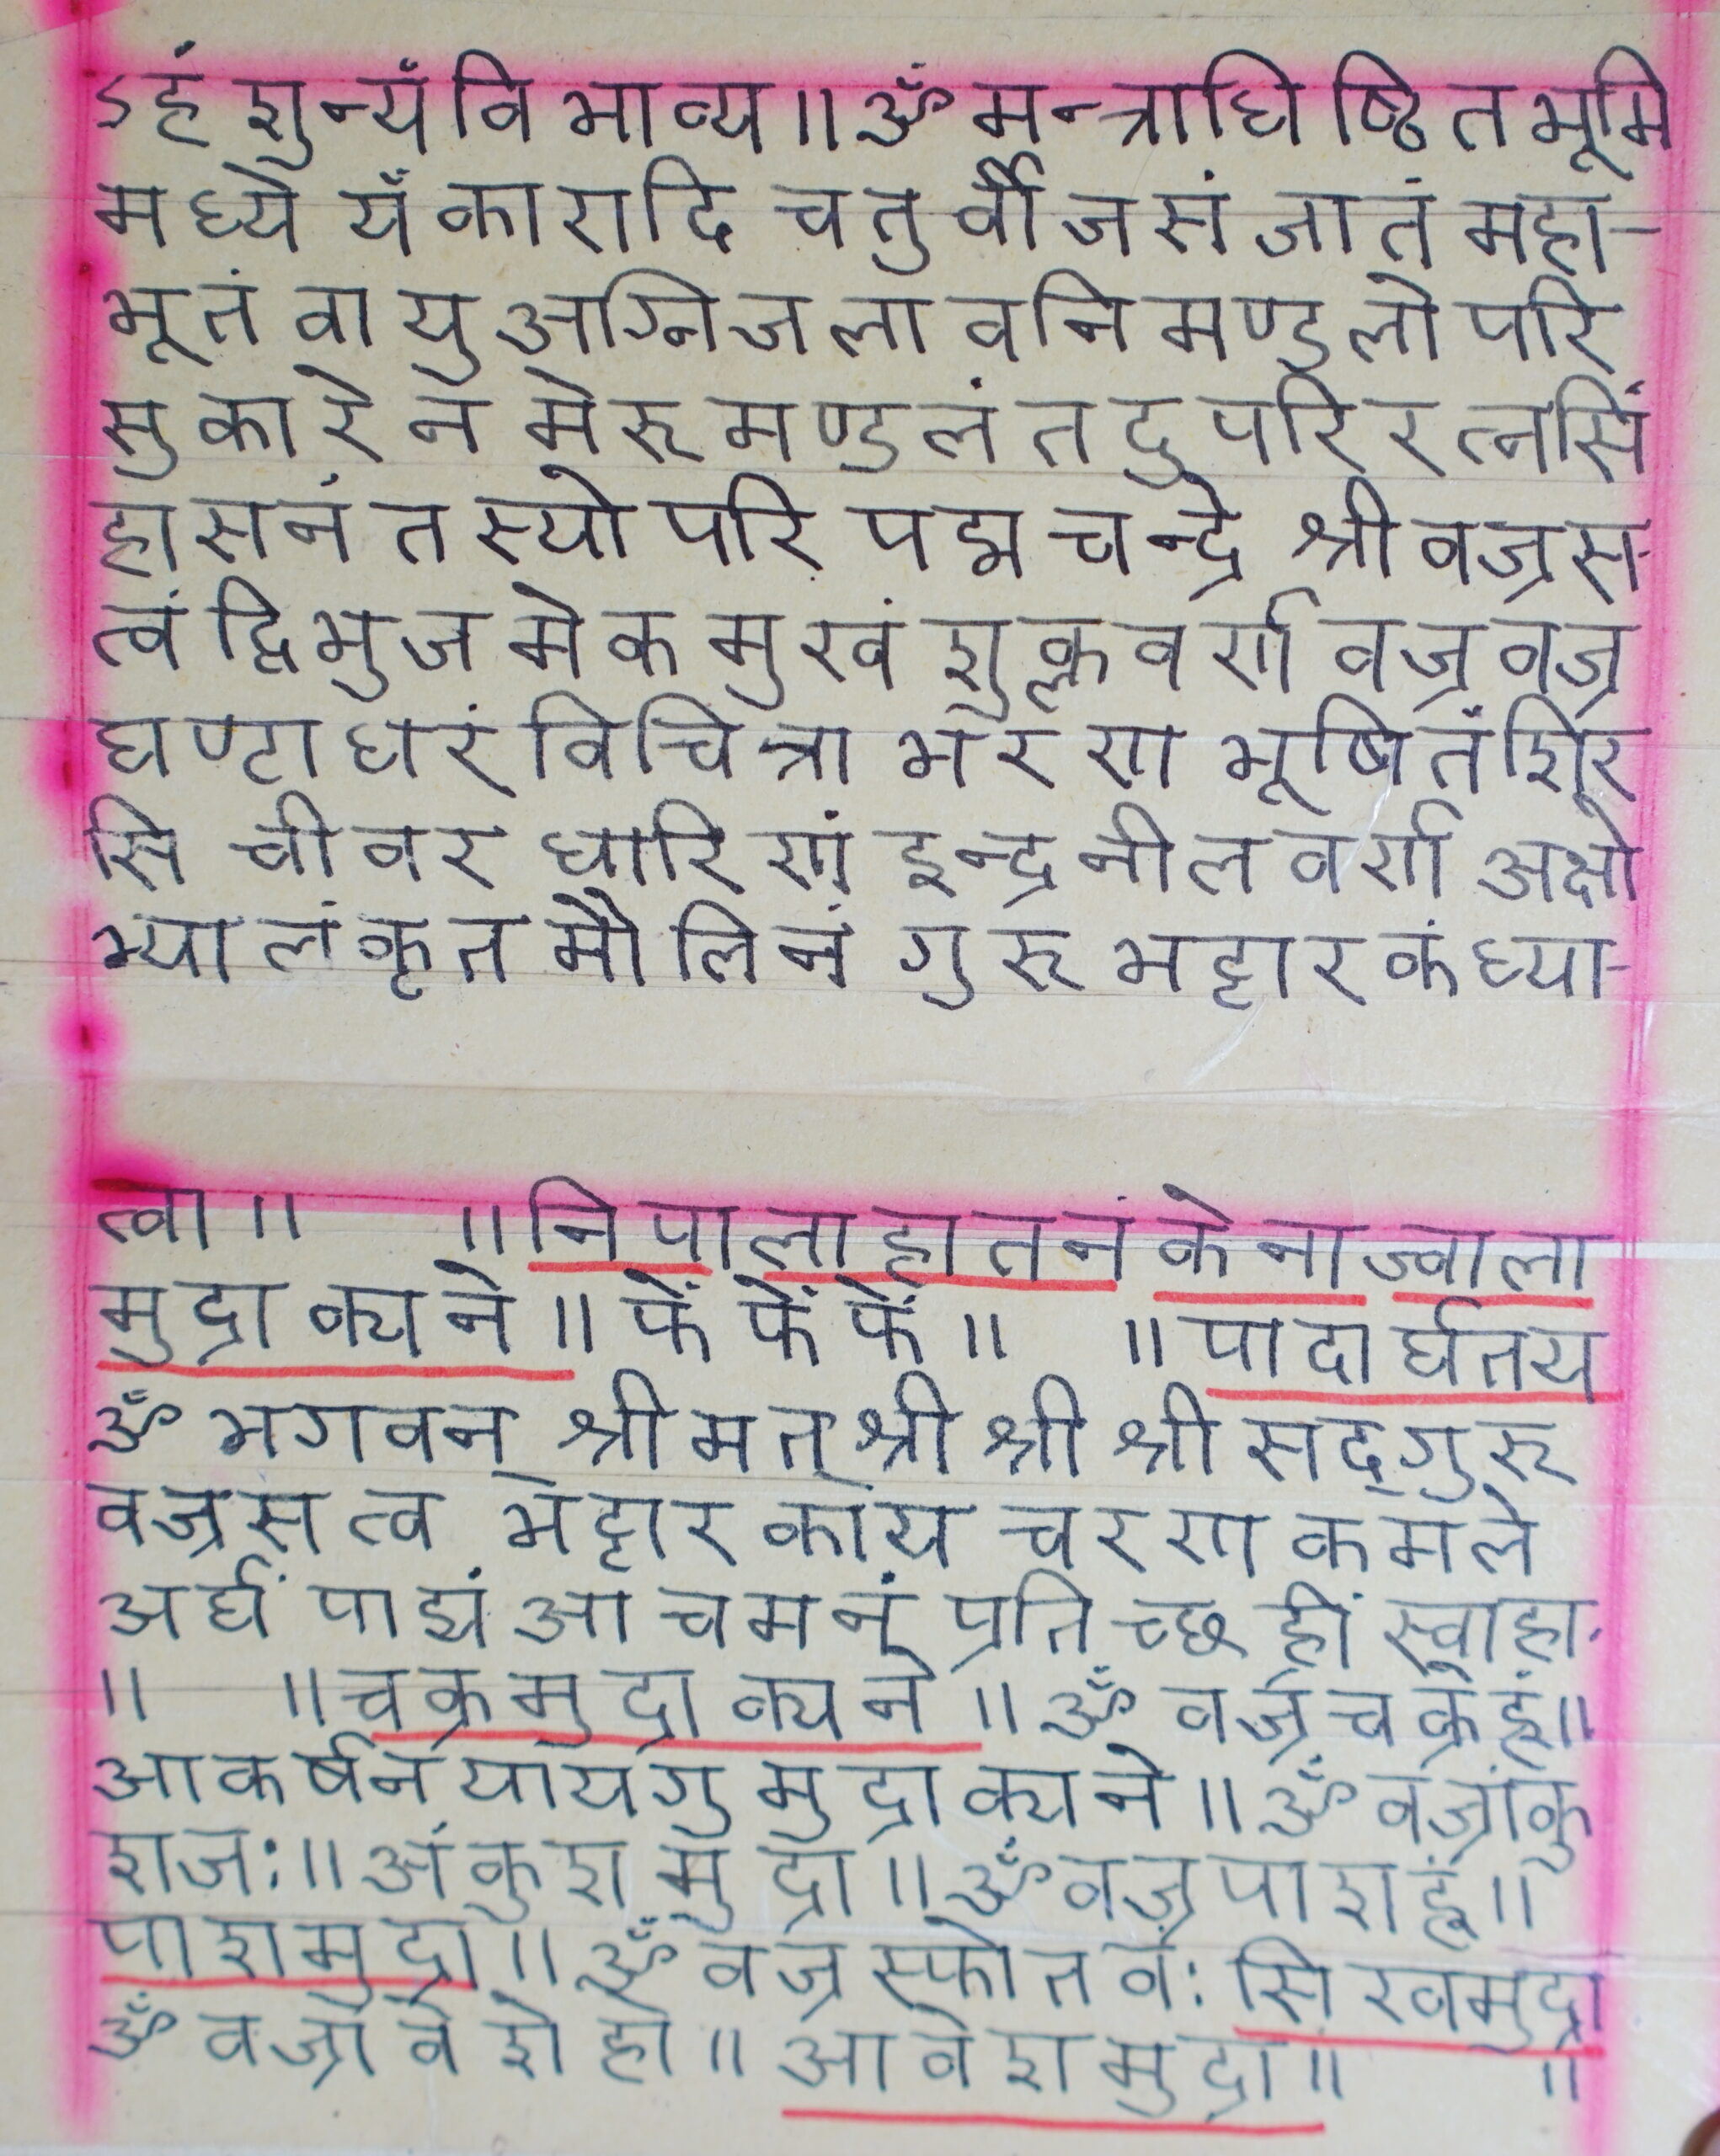 ऽहं शुन्यं विभाव्य॥ ॐ मन्त्राधिष्ठित भूमि
मध्ये यँ कारादि चतुर्वीज संजातं महा-
भूतं वायु अग्निजलावनि मण्डलोपरि
सुकारेन मेरुमण्डलं तदुपरि रत्नसिं
हासनं तस्योपरि पद्म चन्द्रे श्री वज्रस-
त्वं द्विभुजमेकमुखं शुक्लवर्ण वज्र वज्र
घण्टा धरं विचित्रा भरण भूषितं शिर
सि चीवर धारिणं इन्द्र नील वर्ण अक्षो
भ्यालंकृत मौलिनं गुरु भट्टारकं ध्या-
त्वा॥ ॥ निपालाहातनं केना ज्वाला
मुद्रा क्यने॥ फें फें फें॥ ॥ पादार्घतय
ॐ भगवन् श्रीमत् श्री श्री श्री सद्गुरु
वज्रसत्व भट्टारकाय चरण कमले
अर्घं पाद्यं आचमनं प्रतिच्छ ह्रीं स्वाहा.
॥ ॥ चक्रमुद्रा क्यने॥ ॐ वज्र चक्र हूं॥
आकर्षन यायगु मुद्रा क्यने॥ ॐ वज्रांकु
शजः॥ अंकुश मुद्रा॥ ॐ वज्रपाश हूं॥
पाशमुद्रा॥ ॐ वज्र स्फोत वं: सिखमुद्रा
ॐ वज्रावेश हो॥ आवेशमुद्रा॥ ॥